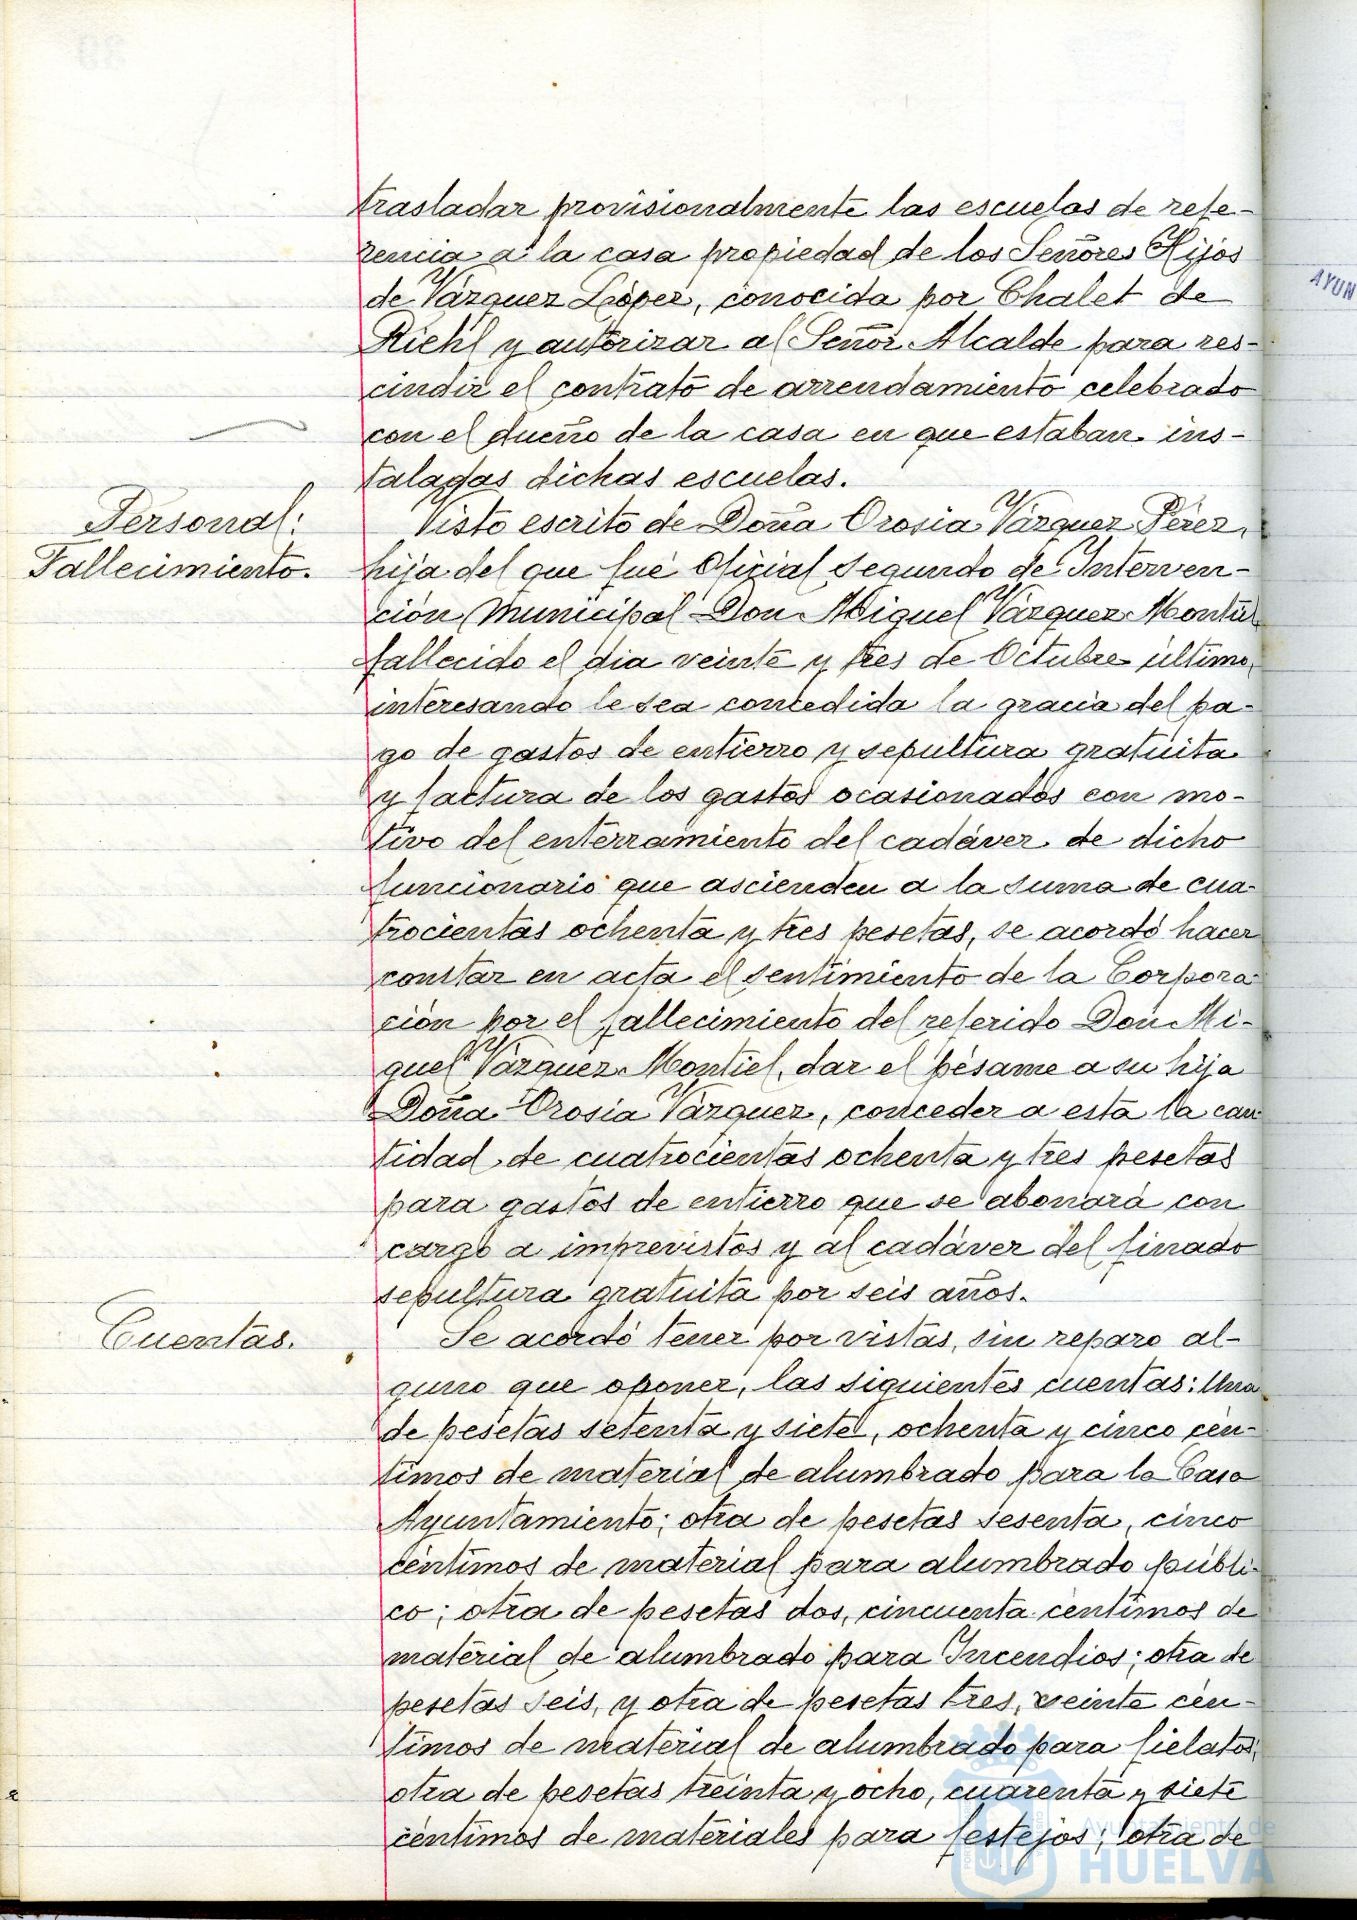 trasladar provisionalmente las escuelas de refe-
rencia a la casa propiedad de los Señores Hijos
de Vázquez López, conocida por Chalet de
Riehl y autorizar al Señor Alcalde para res-
cindir el contrato de arrendamiento celebrado
con el dueño de la casa en que estaban ins-
taladas dichas escuelas.
Personal:
Fallecimiento.
Visto escrito de Doña Orosia Vázquez Pérez,
hija del que fué Oficial segundo de Interven-
ción Municipal Don Miguel Vázquez Montiel,
fallecido el dia veinte y tres de Octubre último,
interesando le sea concedida la gracia del pa-
go de gastos de entierro y sepultura gratuita
y factura de los gastos ocasionados con mo-
tivo del enterramiento del cadáver de dicho
funcionario que ascienden a la suma de cua-
trocientas ochenta y tres pesetas, se acordó hacer
constar en acta el sentimiento de la Corpora-
ción por el fallecimiento del referido Don Mi-
guel Vázquez Montiel, dar el pésame a su hija
Doña Orosia Vázquez, conceder a esta la can-
tidad de cuatrocientas ochenta y tres pesetas
para gastos de entierro que se abonará con
cargo a imprevistos y al cadáver del finado
sepultura gratuita por seis años.
Cuentas.
Se acordó tener por vistas, sin reparo al-
guno que oponer, las siguientes cuentas: Una
de pesetas setenta y siete, ochenta y cinco cén-
timos de material de alumbrado para la Casa
Ayuntamiento; otra de pesetas sesenta, cinco
céntimos de material para alumbrado públi-
co; otra de pesetas dos, cincuenta céntimos de
material de alumbrado para Incendios; otra de
pesetas seis, y otra de pesetas tres, veinte cén-
timos de material de alumbrado para fielatos;
otra de pesetas treinta y ocho, cuarenta y siete
céntimos de materiales para festejos; otra de
AYUN
Ayuntamiento de
HUELVA